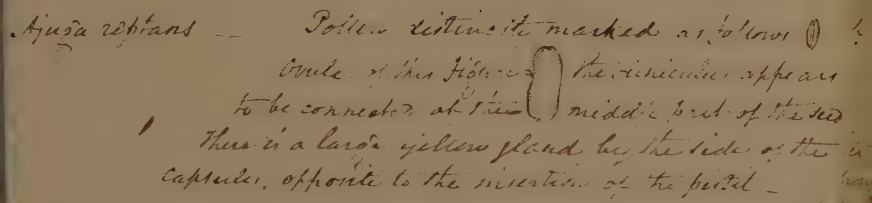 Ajuga reptans -- Pollen distinctly marked as follows
Ovule of this figure the funiculus appears
to be connected at the middle part of the seed
There is a large yellow gland by the side of the
capsule, opposite to the insertion of the pistil -